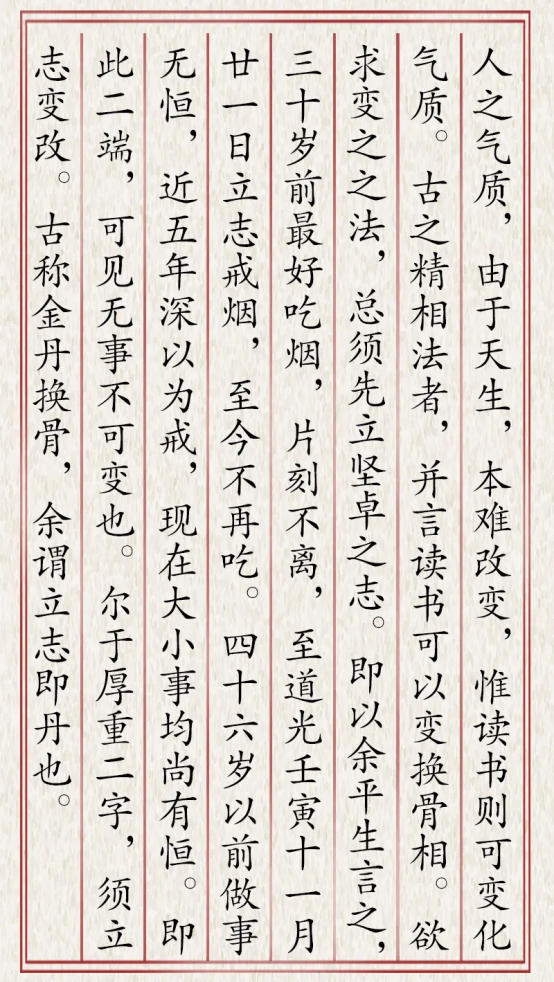 人之气质，由于天生，本难改变，惟读书则可变化
气质。古之精相法者，并言读书可以变换骨相。欲
求变之之法，总须先立坚卓之志。即以余平生言之，
三十岁前最好吃烟，片刻不离，至道光壬寅十一月
廿一日立志戒烟，至今不再吃。四十六岁以前做事
无恒，近五年深以为戒，现在大小事均尚有恒。即
此二端，可见无事不可变也。尔于厚重二字，须立
志变改。古称金丹换骨，余谓立志即丹也。